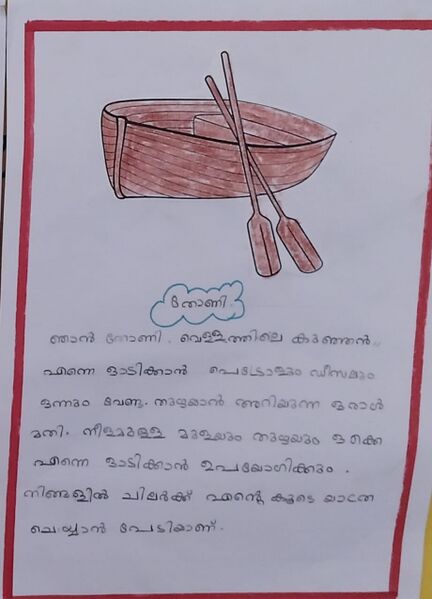 തോണി.
ഞാൻ തോണി. വെള്ളത്തിലെ കുഞ്ഞൻ.
എന്നെ ഓടിക്കാൻ പെട്രോളും ഡീസലും
ഒന്നും വേണ്ട. തുഴയാൻ അറിയുന്ന ഒരാൾ
മതി. നീളമുള്ള മുളയും തുഴയും ഒക്കെ
എന്നെ ഓടിക്കാൻ ഉപയോഗിക്കും.
നിങ്ങളിൽ ചിലർക്ക് എന്റെ കൂടെ യാത്ര
ചെയ്യാൻ പേടിയാണ്.